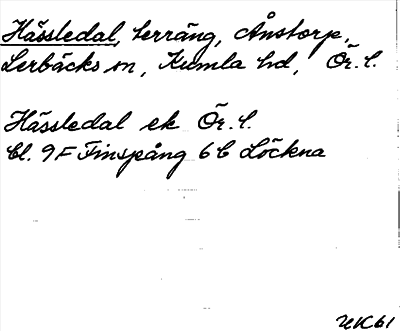 Hässledal, terräng, Ånstorp,
Lerbäcks sn, Kumla hd, Ör. l.
Hässledal ek Ör. l.
bl. 9F Finspång 6b Löckna
UK61